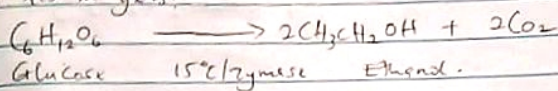 C6H12O6 ⟶ 2CH3CH2OH + 2CO2
Glucose 15°C/zymase Ethanol.